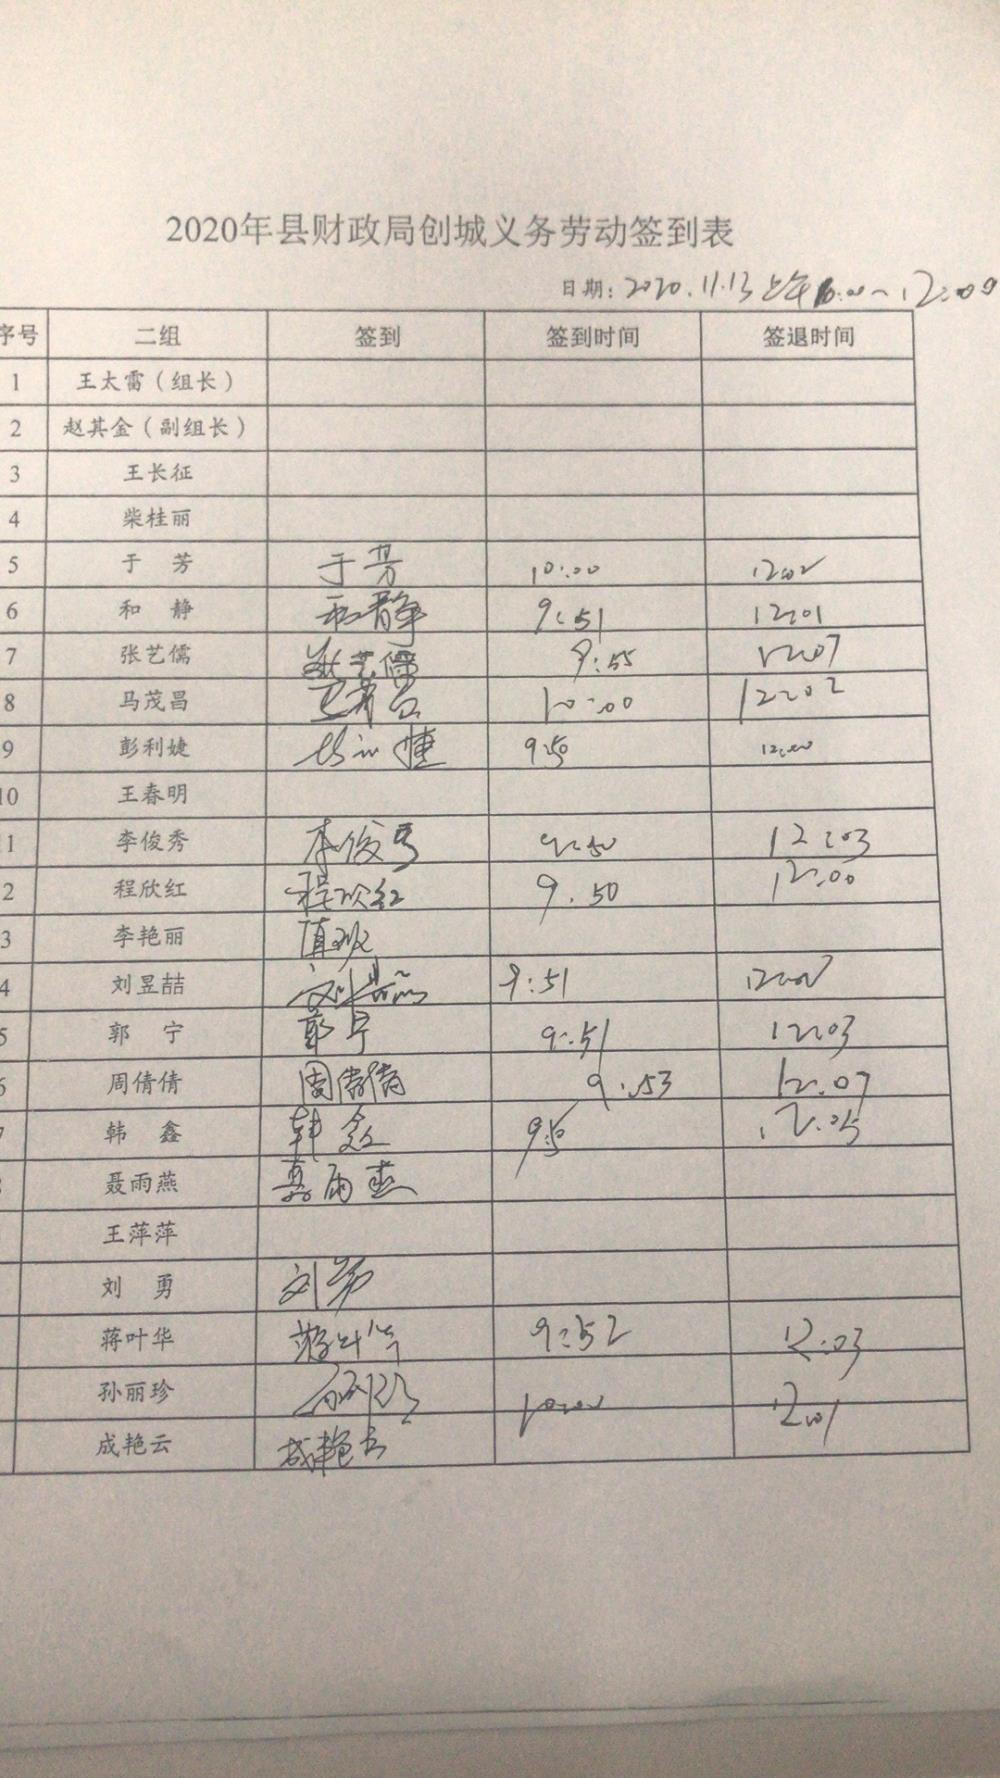 2020年县财政局创城义务劳动签到表
日期: 2020.11.13 上午10:00~12:00
序号 二组 签到 签到时间 签退时间
1 王太雷（组长）
2 赵其金（副组长）
3 王长征
4 柴桂丽
5 于 芳 于芳 10:00 12:02
6 和 静 和静 9:51 12:01
7 张艺儒 张艺儒 9:55 12:07
8 马茂昌 10:00 12:02
9 彭利婕 9:50 12:00
10 王春明
1 李俊秀 李俊秀 9:50 12:03
2 程欣红 程欣红 9.50 12:00
3 李艳丽 值班
4 刘昱喆 刘昱喆 9:51
5 郭 宁 郭宁 9:51 12:03
6 周倩倩 周倩倩 9:53 12:07
7 韩 鑫 韩鑫 9:50 12:05
聂雨燕 聂雨燕
王萍萍
刘 勇 刘勇
蒋叶华 蒋叶华 9:52 12:03
孙丽珍 10:00 12:01
成艳云 成艳云